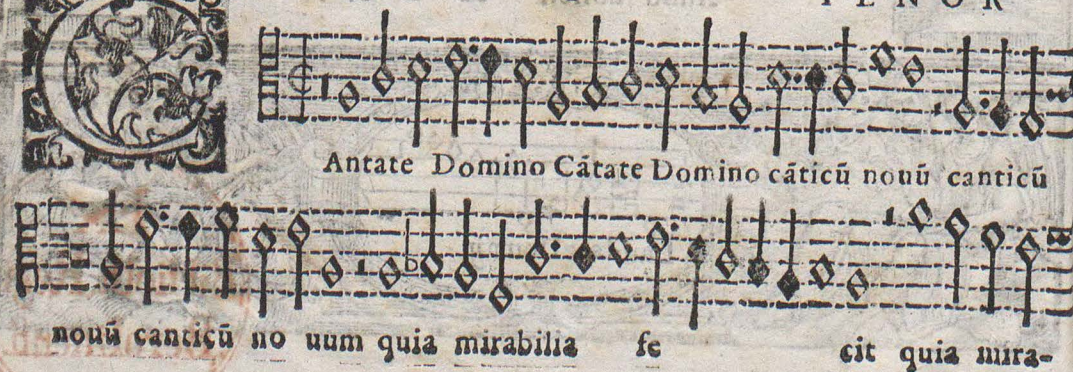 TENOR
CAntate Domino Cãtate Domino cãticũ nouũ canticũ
nouũ canticũ no uum quia mirabilia fe cit quia mira-